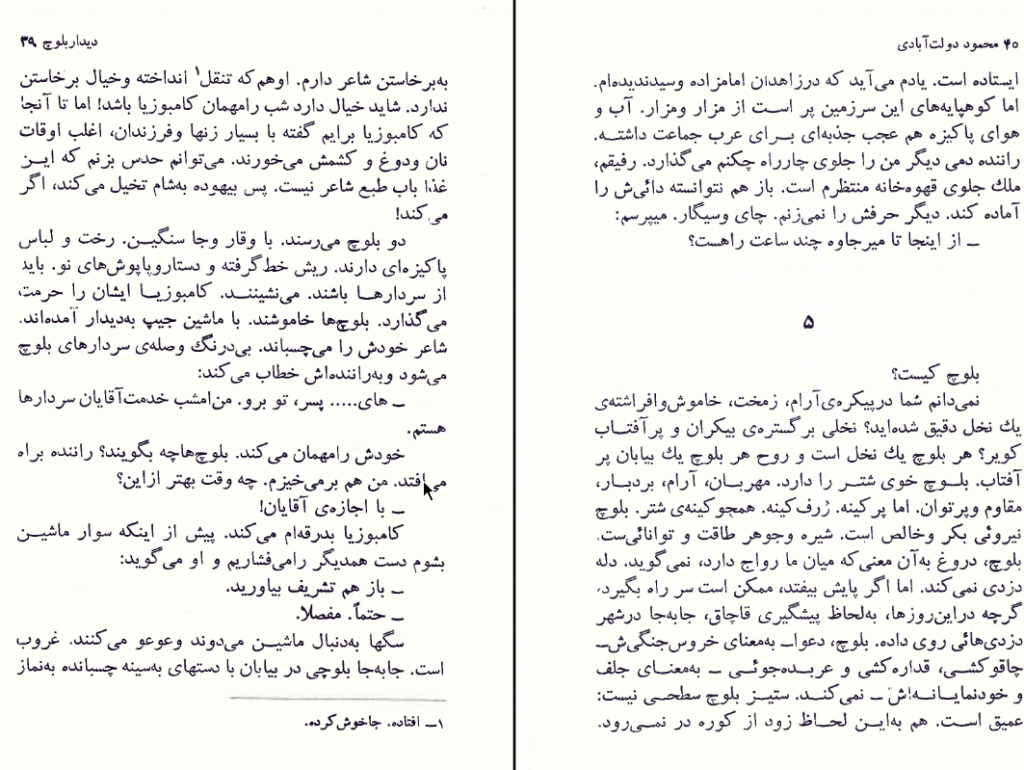 دیدار بلوچ ۳۹
به‌برخاستن شاعر دارم. اوهم که تنقل۱ انداخته وخیال برخاستن
ندارد. شاید خیال دارد شب رامهمان کامبوزیا باشد! اما تا آنجا
که کامبوزیا برایم گفته با بسیار زنها وفرزندان، اغلب اوقات
نان ودوغ و کشمش می‌خورند. می‌توانم حدس بزنم که ایـن
غذا باب طبع شاعر نیست. پس بیهوده به‌شام تخیل می‌کند، اگر
می‌کند!
دو بلوچ می‌رسند. با وقار وجا سنگیـن. رخت و لباس
پاکیزه‌ای دارند. ریش خط‌گرفته و دستاروپاپوش‌های نو. باید
از سردارهـا باشند. می‌نشیننـد. کامبوزیـا ایشان را حرمت
می‌گذارد. بلوچ‌ها خاموشند. با ماشین جیپ به‌دیدار آمده‌اند.
شاعر خودش را می‌چسباند. بی‌درنگ وصله‌ی سردارهای بلوچ
می‌شود وبه‌راننده‌اش خطاب می‌کند:
ـ های..... پسر، تو برو. من‌امشب خدمت‌آقایان سردارها
هستم.
خودش رامهمان می‌کند. بلوچ‌هاچه بگویند؟ راننده براه
می‌افتد. من هم برمی‌خیزم. چه وقت بهتر ازاین؟
ـ با اجازه‌ی آقایان!
کامبوزیا بدرقه‌ام می‌کند. پیش از اینکه سوار ماشیـن
بشوم دست همدیگر رامی‌فشاریم و او می‌گوید:
ـ باز هم تشریف بیاورید.
ـ حتماً. مفصلا.
سگها به‌دنبال ماشیـن می‌دوند وعوعو می‌کنند. غروب
است. جابه‌جا بلوچی در بیابان با دستهای به‌سینه چسبانده به‌نماز
۱ـ افتاده. جاخوش‌کرده.
۴۰ محمود دولت‌آبادی
ایستاده است. یادم می‌آید که درزاهدان امامزاده وسیدندیده‌ام.
اما کوهپایه‌های این سرزمین پر اسـت از مزار ومزار. آب و
هوای پاکیزه هم عجب جذبه‌ای بـرای عرب جماعت داشتـه.
راننده دمی دیگر من را جلوی چارراه چکنم می‌گذارد. رفیقم،
ملك جلوی قهوه‌خانه منتظرم است. باز هم نتوانسته دائی‌ش را
آماده کند. دیگر حرفش را نمی‌زنم. چای وسیگار. میپرسم:
ـ از اینجا تا میرجاوه چند ساعت راهست؟
۵
بلوچ کیست؟
نمی‌دانم شما درپیکره‌ی‌آرام، زمخت، خاموش‌وافراشته‌ی
یك نخل دقیق شده‌اید؟ نخلی برگستره‌ی بیکران و پرآفتـاب
کویر؟ هر بلوچ یك نخل است و روح هر بلوچ یك بیابان پر
آفتاب. بلـوچ خوی شتـر را دارد. مهربـان، آرام، بردبـار،
مقاوم وپرتوان. اما پرکینه. ژرف‌کینه. همچوکینه‌ی شتر. بلوچ
نیروئی بکر وخالص است. شیره وجوهر طاقت و توانائی‌ست.
بلوچ، دروغ به‌آن معنی‌که میان ما رواج دارد، نمی‌گوید. دله
دزدی نمی‌کند. اما اگر پایش بیفتد، ممکن است سر راه بگیرد.
گرچه دراین‌روزها، به‌لحاظ پیشگیری قاچاق، جابه‌جا درشهر
دزدی‌هائی روی داده. بلوچ، دعواـ به‌معنای خروس‌جنگی‌شـ
چاقوکشـی، قداره‌کشی و عربـده‌جوئـی ـ به‌معنـای جلف
و خودنمایـانـه‌اش ـ نمی‌کنـد. ستیـز بلوچ سطحـی نیست:
عمیق اسـت. هم به‌ایـن لحـاظ زود از کوره در نمـی‌رود.